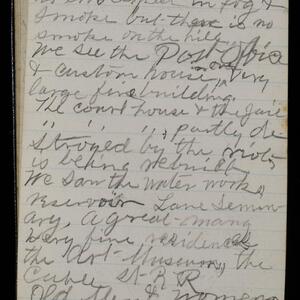 in fog &
smoke but there is no
smoke on the hill.
We see the Post office
& custom house, very
large fine building.
The court house & the Jail
" " " , partly de
stroyed by the riots
is being rebuilt.
We saw the water works
reservoir Lane Semin
ary, A great many
very fine residences
the Art Museum, the
Cable St. R R
Old Men & womens